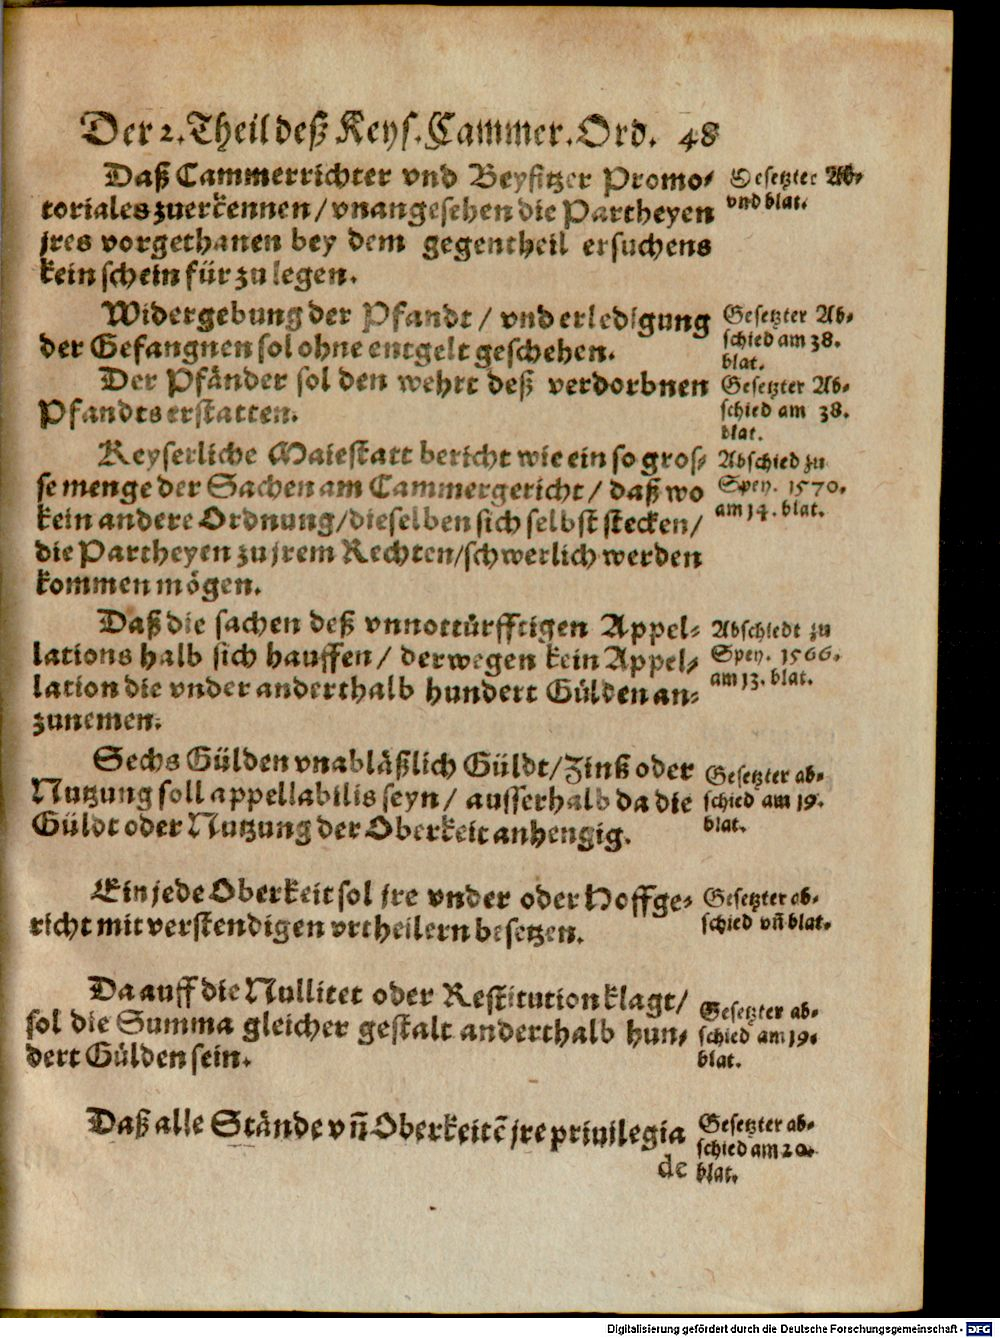 Der 2. Theil deß Keys. Cammer. Ord. 48
Daß Cammerrichter vnd Beysitzer Promo-
toriales zuerkennen / vnangesehen die Partheyen
jres vorgethanen bey dem gegentheil ersuchens
kein schein fürzulegen.
Gesetzter Ab-
vnd blat.
Widergebung der Pfandt / vnd erledigung
der Gefangnen sol ohne entgelt geschehen.
Gesetzter Ab-
schied am 38.
blat.
Der Pfänder sol den wehrt deß verdorbnen
Pfandts erstatten.
Gesetzter Ab-
schied am 38.
blat.
Keyserliche Maiestatt bericht wie ein so gros-
se menge der Sachen am Cammergericht / daß wo
kein andere Ordnung / dieselben sich selbst stecken /
die Partheyen zu jrem Rechten / schwerlich werden
kommen mögen.
Abschied zu
Spey. 1570.
am 14. blat.
Daß die sachen deß vnnottürfftigen Appel-
lations halb sich hauffen / derwegen kein Appel-
lation die vnder anderthalb hundert Gülden an-
zunemen.
Abschiedt zu
Spey. 1566.
am 13. blat.
Sechs Gülden vnabläßlich Güldt / Zinß oder
Nutzung soll appellabilis seyn / ausserhalb da die
Güldt oder Nutzung der Oberkeit anhengig.
Gesetzter ab-
schied am 19.
blat.
Ein jede Oberkeit sol jre vnder oder Hoffge-
richt mit verstendigen vrtheilern besetzen.
Gesetzter ab-
schied vñ blat.
Da auff die Nullitet oder Restitution klagt /
sol die Summa gleicher gestalt anderthalb hun-
dert Gülden sein.
Gesetzter ab-
schied am 19.
blat.
Daß alle Stände vñ Oberkeitẽ jre priuilegia
de
Gesetzter ab-
schied am 20.
blat.
Digitalisierung gefördert durch die Deutsche Forschungsgemeinschaft - DFG